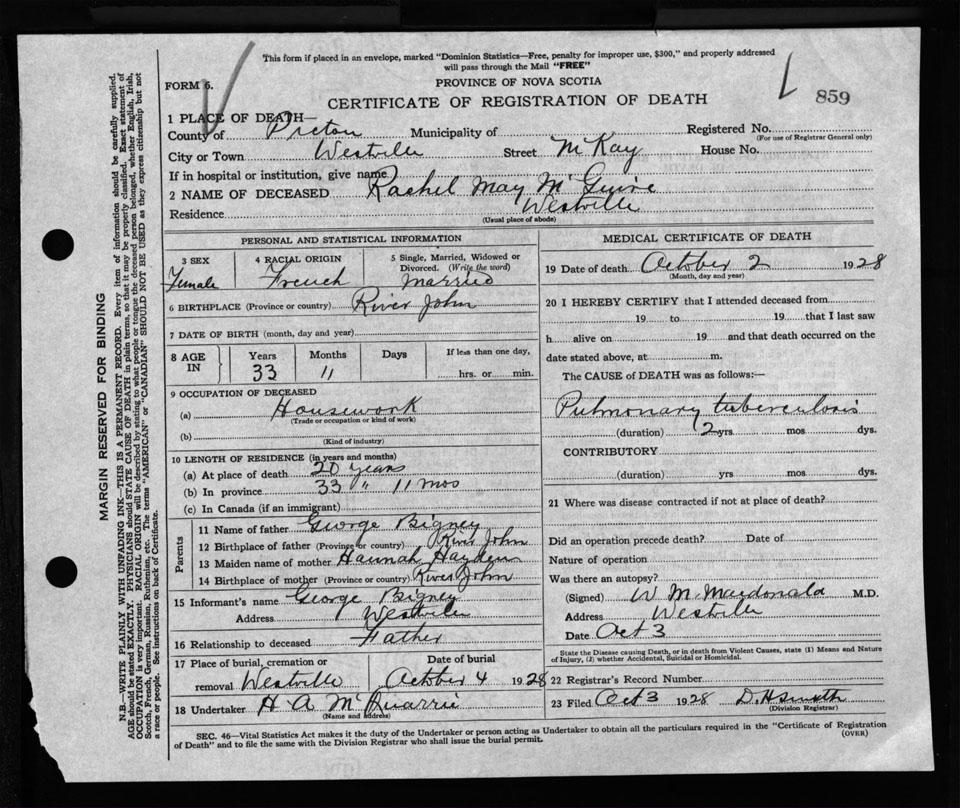 This form if placed in an envelope, marked "Dominion Statistics—Free, penalty for improper use, $300," and properly addressed
will pass through the Mail "FREE"
FORM 6.
PROVINCE OF NOVA SCOTIA
CERTIFICATE OF REGISTRATION OF DEATH
859
1 PLACE OF DEATH—
County of Pictou Municipality of Registered No.
(For use of Registrar General only)
City or Town Westville Street McKay House No.
If in hospital or institution, give name
2 NAME OF DECEASED Rachel May McGuire
Residence Westville
(Usual place of abode)
PERSONAL AND STATISTICAL INFORMATION
3 SEX 4 RACIAL ORIGIN 5 Single, Married, Widowed or
Divorced. (Write the word)
Female French Married
6 BIRTHPLACE (Province or country) River John
7 DATE OF BIRTH (month, day and year)
8 AGE IN Years Months Days If less than one day,
33 11 hrs. or min.
9 OCCUPATION OF DECEASED
(a) Housework
(Trade or occupation or kind of work)
(b)
(Kind of industry)
10 LENGTH OF RESIDENCE (in years and months)
(a) At place of death 20 years
(b) In province 33 " 11 mos
(c) In Canada (if an immigrant)
Parents
11 Name of father George Bigney
12 Birthplace of father (Province or country) River John
13 Maiden name of mother Hannah Hayden
14 Birthplace of mother (Province or country) River John
15 Informant's name George Bigney
Address Westville
16 Relationship to deceased Father
17 Place of burial, cremation or Date of burial
removal Westville October 4 1928
18 Undertaker H A McQuarrie
(Name and address)
MEDICAL CERTIFICATE OF DEATH
19 Date of death October 2 1928
(Month, day and year)
20 I HEREBY CERTIFY that I attended deceased from
19 to 19 that I last saw
h alive on 19 and that death occurred on the
date stated above, at m.
The CAUSE of DEATH was as follows:—
Pulmonary tuberculosis
(duration) 2 yrs mos dys.
CONTRIBUTORY
(duration) yrs mos dys.
21 Where was disease contracted if not at place of death?
Did an operation precede death? Date of
Nature of operation
Was there an autopsy?
(Signed) W M Macdonald M.D.
Address Westville
Date Oct 3
State the Disease causing Death, or in death from Violent Causes, state (1) Means and Nature
of Injury, (2) whether Accidental, Suicidal or Homicidal.
22 Registrar's Record Number
23 Filed Oct 3 1928 D. H Smith
(Division Registrar)
SEC. 46—Vital Statistics Act makes it the duty of the Undertaker or person acting as Undertaker to obtain all the particulars required in the "Certificate of Registration
of Death" and to file the same with the Division Registrar who shall issue the burial permit.
(OVER)
MARGIN RESERVED FOR BINDING
N.B.—WRITE PLAINLY WITH UNFADING INK—THIS IS A PERMANENT RECORD. Every item of information should be carefully supplied.
AGE should be stated EXACTLY. PHYSICIANS should STATE CAUSE OF DEATH in plain terms, so that it may be properly classified. Exact statement of
OCCUPATION is very important. RACIAL ORIGIN will be described by stating to what people or tongue the deceased person belonged, whether English, Irish,
Scotch, French, German, Russian, Ruthenian, etc. The terms "AMERICAN" or "CANADIAN" SHOULD NOT BE USED as they express citizenship but not
a race or people. See instructions on back of Certificate.